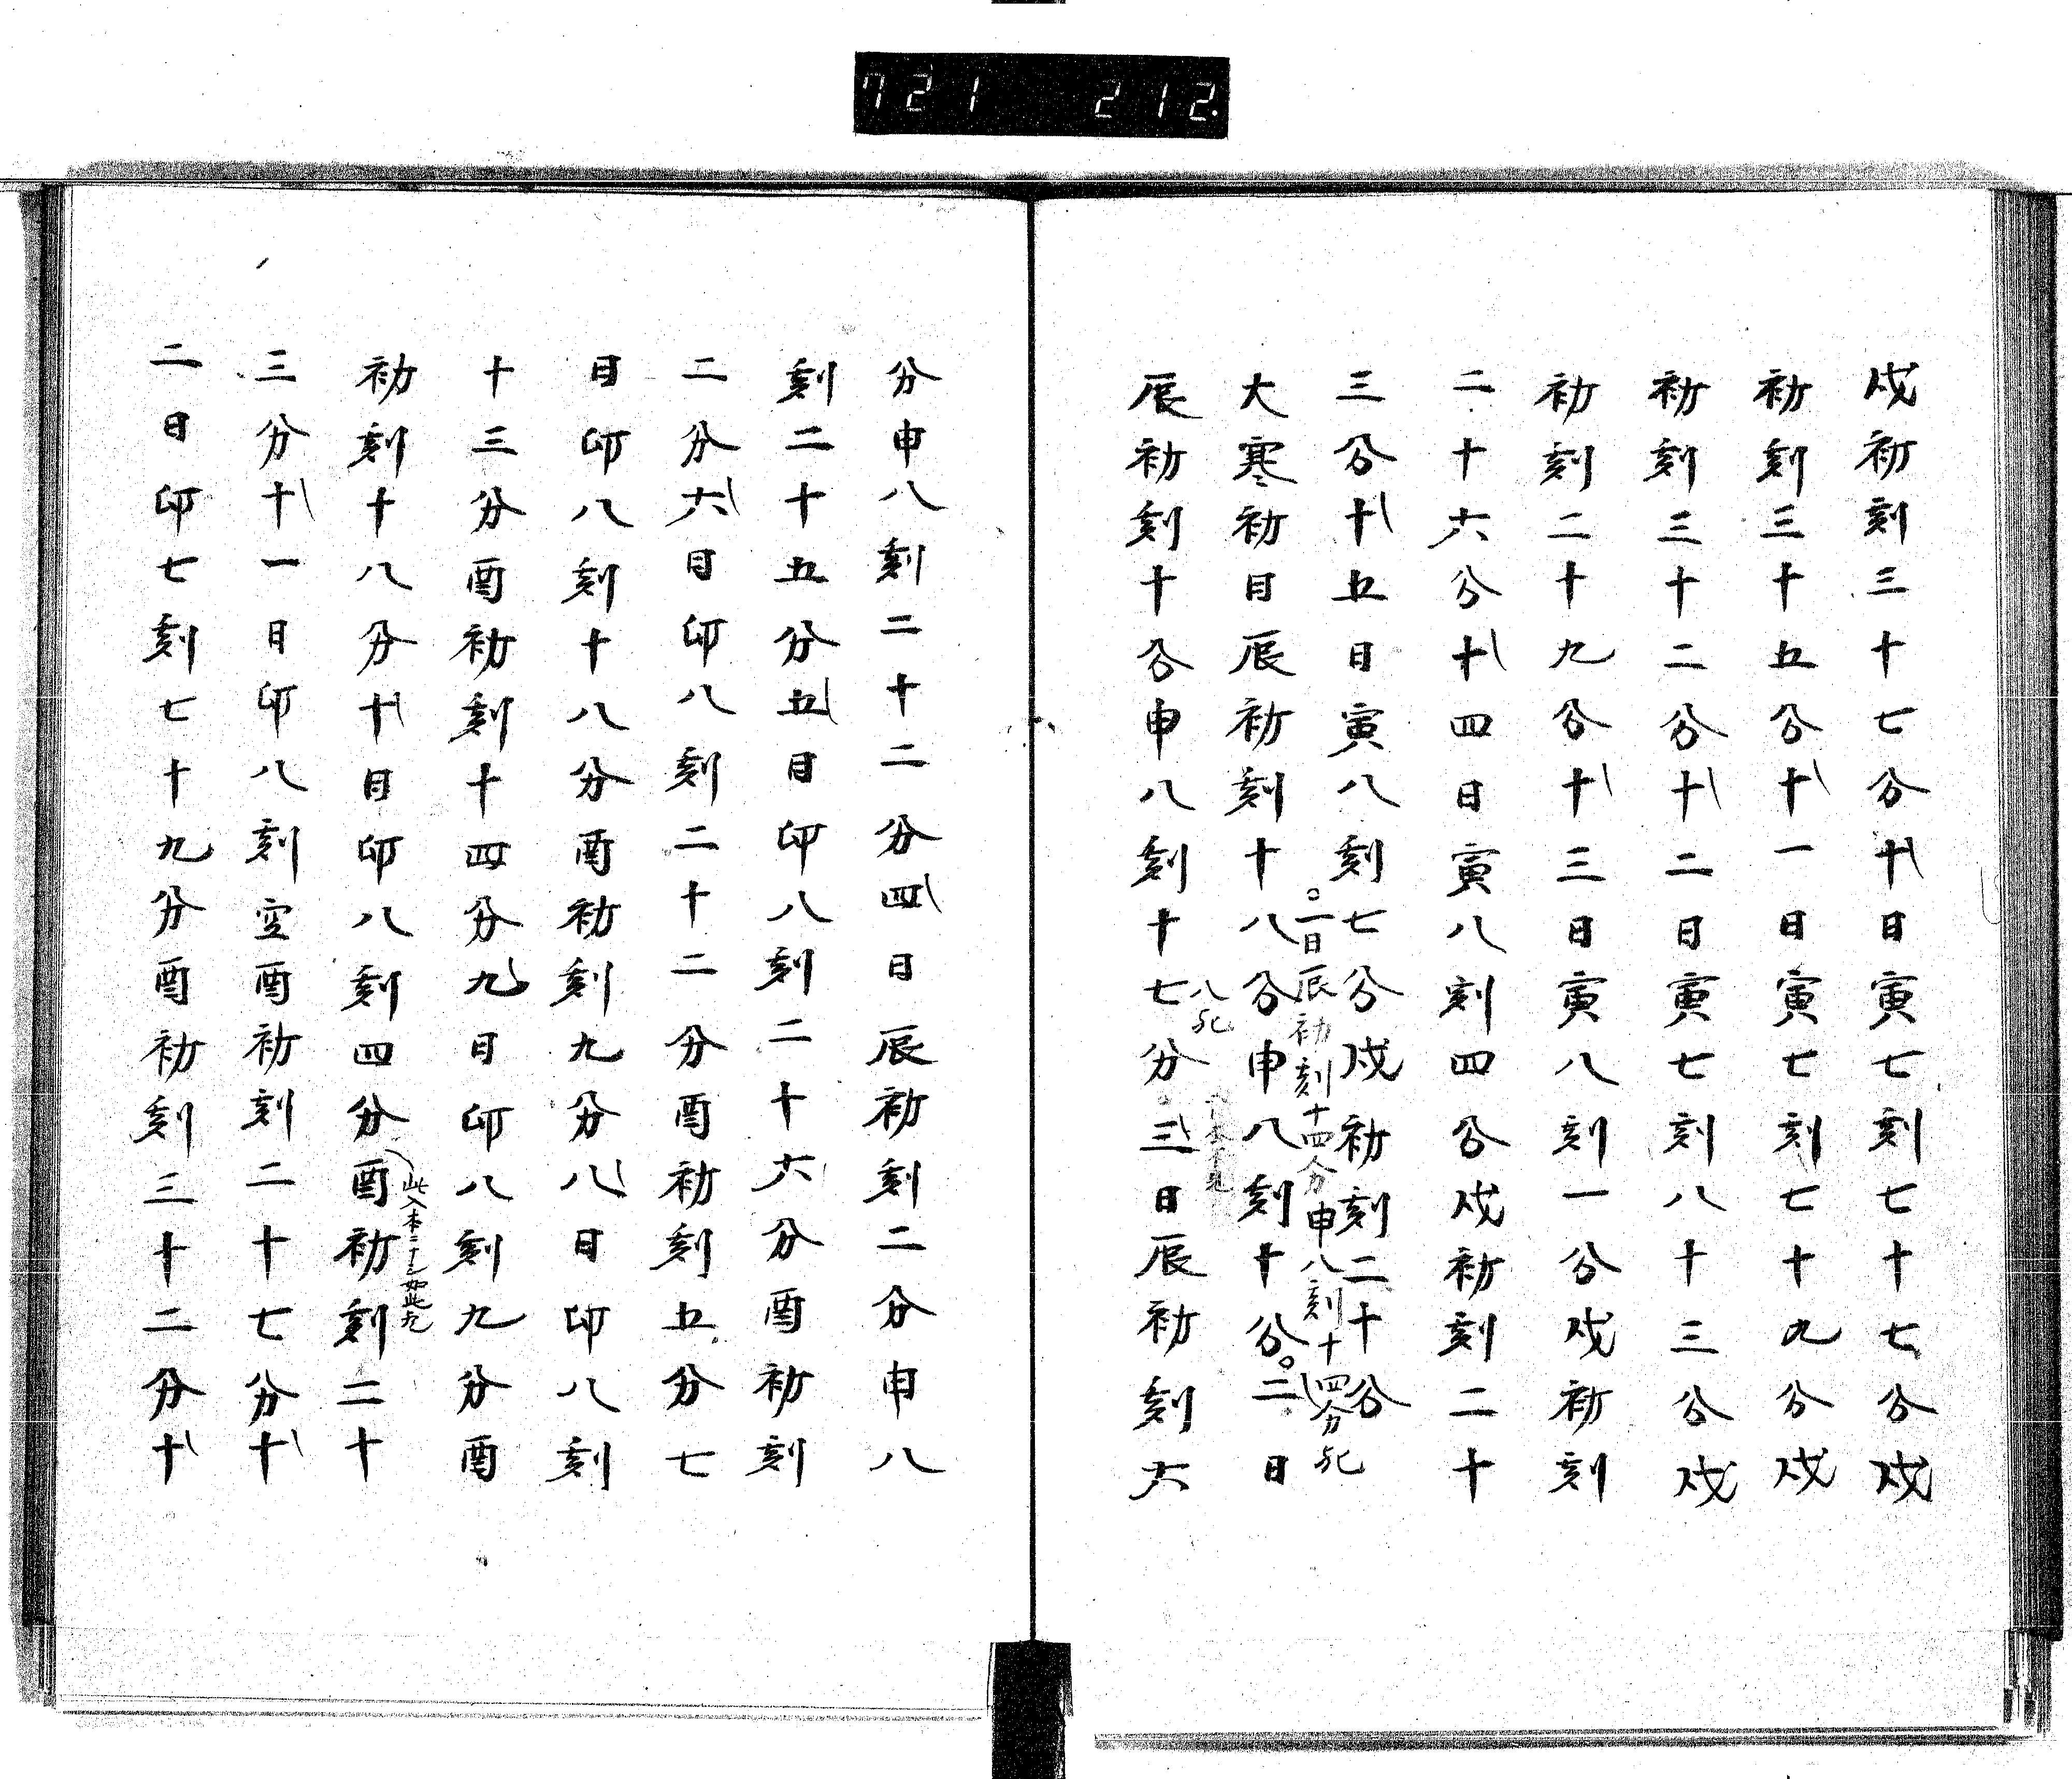 721 212.
戌初刻三十七分十日寅七刻七十七分戌
初刻三十五分十一日寅七刻七十九分戌
初刻三十二分十二日寅七刻八十三分戌
初刻二十九分十三日寅八刻一分戌初刻
二十六分十四日寅八刻四分戌初刻二十
三分十五日寅八刻七分戌初刻二十分
一日辰初刻十四分申八刻十四分
大寒初日辰初刻十八分申八刻十分二日
八
辰初刻十分申八刻十七分三日辰初刻六
分申八刻二十二分四日辰初刻二分申八
刻二十五分五日卯八刻二十六分酉初刻
二分六日卯八刻二十二分酉初刻五分七
日卯八刻十八分酉初刻九分八日卯八刻
十三分酉初刻十四分九日卯八刻九分酉
此入本
初刻十八分十日卯八刻四分酉初刻二十
三分十一日卯八刻空酉初刻二十七分十
二日卯七刻七十九分酉初刻三十二分十